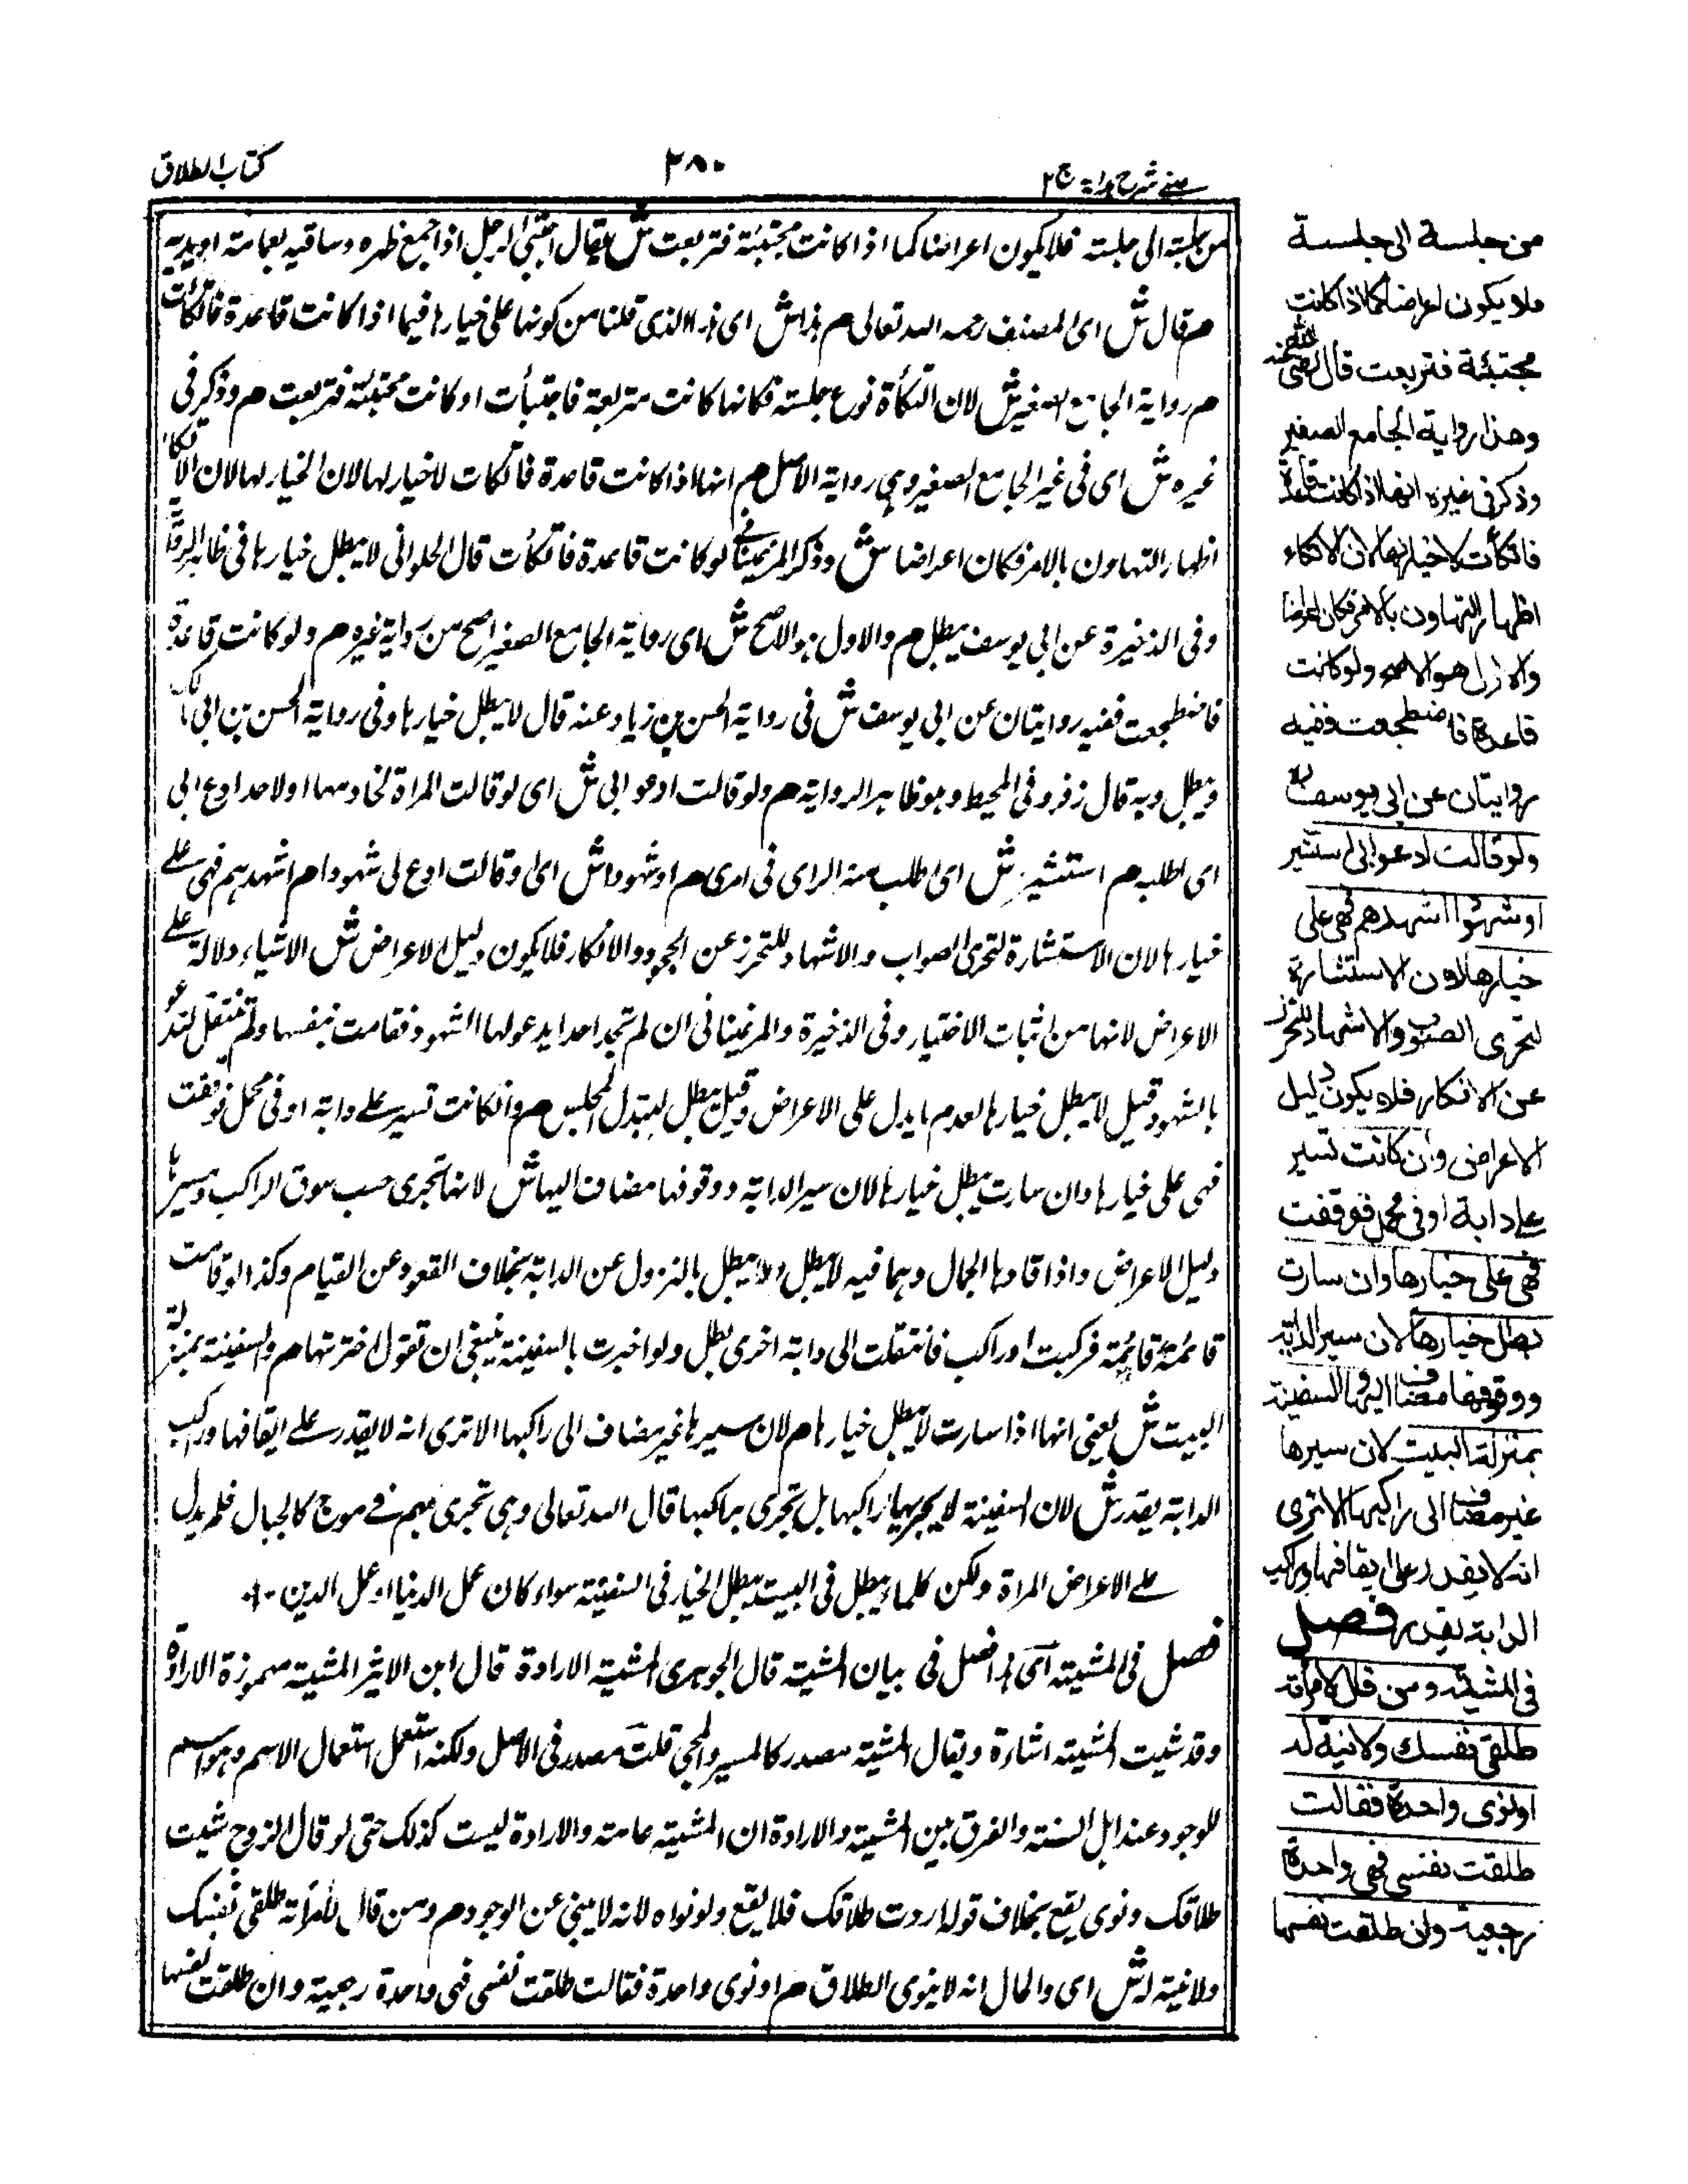 كتاب الطلاق
٢٨٠
عينى شرح هداية ج ٢
من جلسة الى جلسة فلا يكون اعراضا كما اذا كانت محتبئة فتربعت ش يقال احتبى الرجل اذا جمع ظهره وساقيه بعمامته او بيديه
م قال ش اى المصنف رحمه الله تعالى م هذا ش اى هذا الذى قلنا من كونها على خيارها فيما اذا كانت قاعدة فاتكأت
م رواية الجامع الصغير ش لان التكأة نوع جلسة فكانها كانت متربعة فاحتبأت او كانت محتبئة فتربعت م وذكر فى
غيره ش اى فى غير الجامع الصغير وهى رواية الاصل م انها اذا كانت قاعدة فاتكأت لا خيار لها لان الخيار لها لان الاتكاء
اظهار التهاون بالامر فكان اعراضا ش وذكر المرغينانى لو كانت قاعدة فاتكأت قال الحلوانى لا يبطل خيارها فى ظاهر الرواية
وفى الذخيرة عن ابى يوسف يبطل م والاول هو الاصح ش اى رواية الجامع الصغير اصح من رواية غيره م ولو كانت قاعدة
فاضطجعت ففيه روايتان عن ابى يوسف ش فى رواية الحسن بن زياد عنه قال لا يبطل خيارها وفى رواية الحسن بن ابى مالك
يبطل وبه قال زفر وفى المحيط وهو ظاهر الرواية م ولو قالت ادعو ابى ش اى لو قالت المرأة لخادمها او لاحد ادع ابى
اى اطلبه م استشير ش اى اطلب منه الراى فى امرى م او شهودا ش اى او قالت ادع لى شهودا م اشهدهم فهى على
خيارها لان الاستشارة لتحرى الصواب والاشهاد للتحرز عن الجحود والانكار فلا يكون دليل الاعراض ش الاشياء دلالة على
الاعراض لانها من اثبات الاختيار وفى الذخيرة والمرغينانى ان لم تجد احدا يدعو لها الشهود فقامت بنفسها ولم تنتقل لتدعو
بالشهود قيل لا يبطل خيارها لعدم ما يدل على الاعراض وقيل يبطل لتبدل المجلس م وان كانت تسير على دابة او فى محمل فوقفت
فهى على خيارها وان سارت يبطل خيارها لان سير الدابة ووقوفها مضاف اليها ش لانها تجرى حسب سوق الراكب ومسيرها
دليل الاعراض واذا قادها الجمال وهما فيه لا يبطل ولا يبطل بالنزول عن الدابة بخلاف القعود عن القيام وكذا لو قامت
قائمة فركبت او راكب فانتقلت الى دابة اخرى بطل ولو اخبرت بالسفينة ينبغى ان تقول اخترتها م والسفينة بمنزلة
البيت ش يعنى انها اذا سارت لا يبطل خيارها م لان سيرها غير مضاف الى راكبها الا ترى انه لا يقدر على ايقافها وراكب
الدابة يقدر ش لان السفينة لا يجريها راكبها بل تجرى براكبها قال الله تعالى وهى تجرى بهم فى موج كالجبال فلم يدل
على الاعراض المرأة ولكن كلما يبطل فى البيت يبطل الخيار فى السفينة سواء كان عمل الدنيا او عمل الدين
فصل فى المشية اى هذا فصل فى بيان المشية قال الجوهرى المشية الارادة قال ابن الاثير المشية مهموزة الارادة
وقد شيت المشية اشاءة ويقال المشية مصدر كالمسير والمجى قلت مصدر فى الاصل ولكنه استعمل استعمال الاسم وهو اسم
للوجود عند اهل السنة والفرق بين المشية والارادة ان المشية عامة والارادة ليست كذلك حتى لو قال الزوج شيت
طلاقك ونوى يقع بخلاف قوله اردت طلاقك فلا يقع ولو نواه لانه لا ينبئ عن الوجود م ومن قال لامرأته طلقى نفسك
ولا نية له ش اى والحال انه لا ينوى الطلاق م او نوى واحدة فقالت طلقت نفسى فهى واحدة رجعية وان طلقت نفسها
من جلسة الى جلسة
فلا يكون اعراضا كما اذا كانت
محتبئة فتربعت قال رضى الله عنه
وهذا رواية الجامع الصغير
وذكر فى غيره انها اذا كانت قاعدة
فاتكأت لا خيار لها لان الاتكاء
اظهار التهاون بالامر فكان اعراضا
والاول هو الاصح ولو كانت
قاعدة فاضطجعت ففيه
روايتان عن ابى يوسف
ولو قالت ادعو ابى استشير
او شهودا اشهدهم فهى على
خيارها لان الاستشارة
لتحرى الصواب والاشهاد للتحرز
عن الانكار فلا يكون دليل
الاعراض وان كانت تسير
على دابة او فى محمل فوقفت
فهى على خيارها وان سارت
بطل خيارها لان سير الدابة
ووقوفها مضاف اليها والسفينة
بمنزلة البيت لان سيرها
غير مضاف الى راكبها الا ترى
انه لا يقدر على ايقافها وراكب
الدابة يقدر فصل
فى المشية ومن قال لامرأته
طلقى نفسك ولا نية له
او نوى واحدة فقالت
طلقت نفسى فهى واحدة
رجعية وان طلقت نفسها